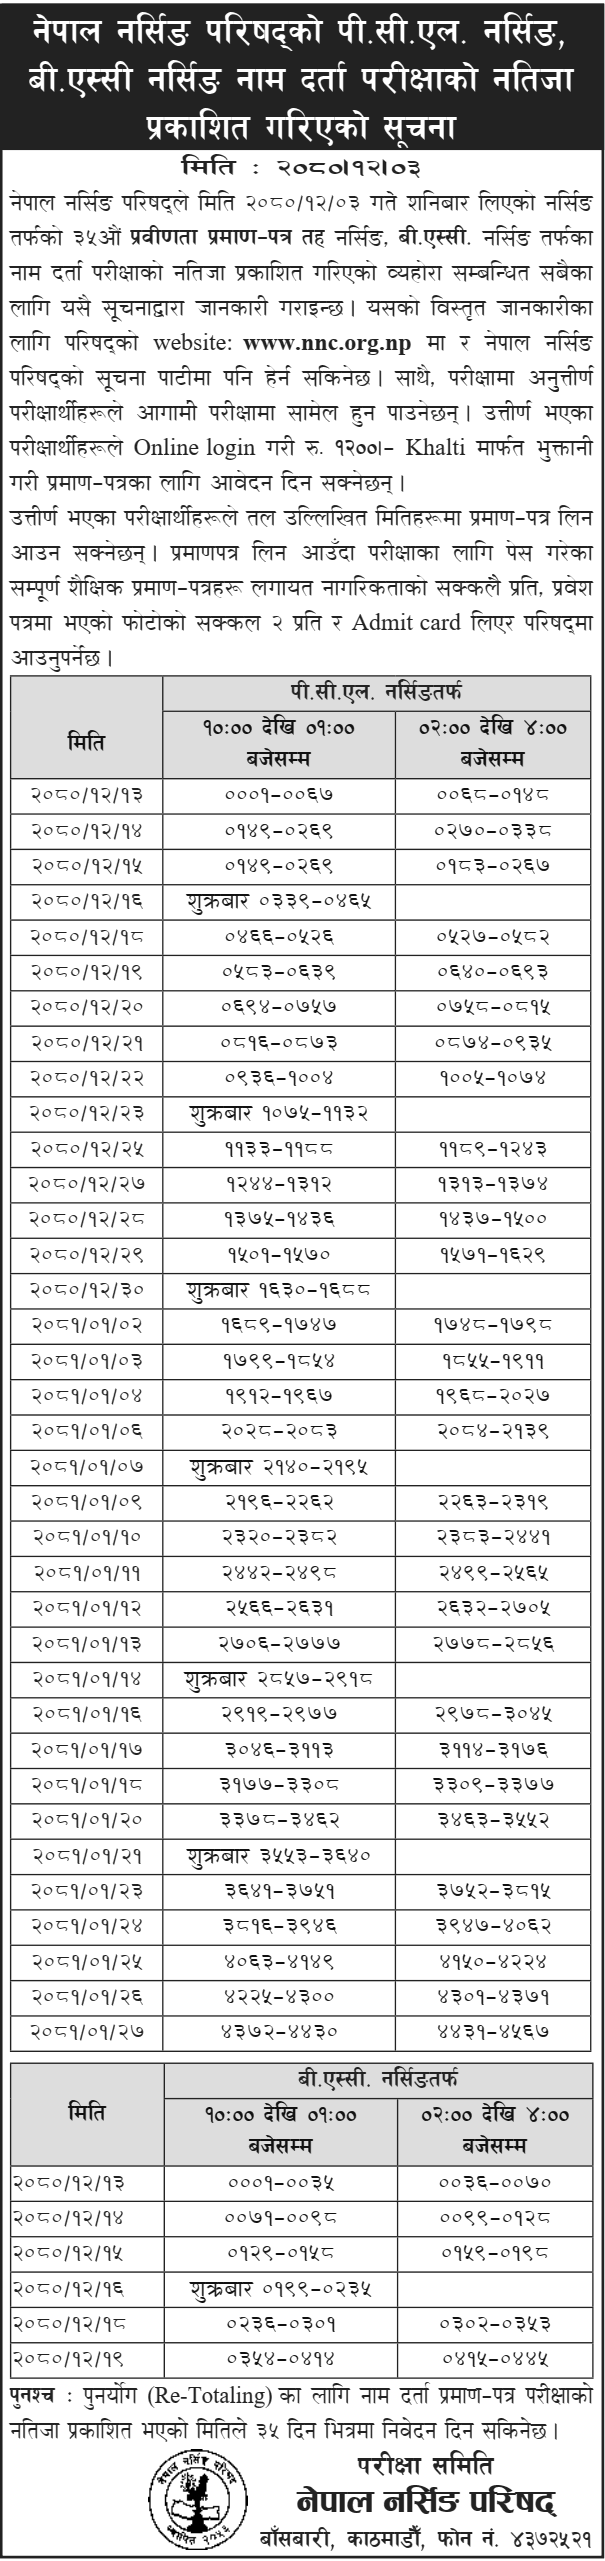 नेपाल नर्सिङ परिषद्को पी.सी.एल. नर्सिङ,
बी.एस्सी नर्सिङ नाम दर्ता परीक्षाको नतिजा
प्रकाशित गरिएको सूचना
मिति : २०८०।१२।०३
नेपाल नर्सिङ परिषद्ले मिति २०८०/१२/०३ गते शनिबार लिएको नर्सिङ
तर्फको ३५औं प्रवीणता प्रमाण-पत्र तह नर्सिङ, बी.एस्सी. नर्सिङ तर्फका
नाम दर्ता परीक्षाको नतिजा प्रकाशित गरिएको व्यहोरा सम्बन्धित सबैका
लागि यसै सूचनाद्वारा जानकारी गराइन्छ। यसको विस्तृत जानकारीका
लागि परिषद्को website: www.nnc.org.np मा र नेपाल नर्सिङ
परिषद्को सूचना पाटीमा पनि हेर्न सकिनेछ। साथै, परीक्षामा अनुत्तीर्ण
परीक्षार्थीहरूले आगामी परीक्षामा सामेल हुन पाउनेछन्। उत्तीर्ण भएका
परीक्षार्थीहरूले Online login गरी रु. १२००।- Khalti मार्फत भुक्तानी
गरी प्रमाण-पत्रका लागि आवेदन दिन सक्नेछन्।
उत्तीर्ण भएका परीक्षार्थीहरूले तल उल्लिखित मितिहरूमा प्रमाण-पत्र लिन
आउन सक्नेछन्। प्रमाणपत्र लिन आउँदा परीक्षाका लागि पेस गरेका
सम्पूर्ण शैक्षिक प्रमाण-पत्रहरू लगायत नागरिकताको सक्कलै प्रति, प्रवेश
पत्रमा भएको फोटोको सक्कल २ प्रति र Admit card लिएर परिषद्मा
आउनुपर्नेछ।
मिति पी.सी.एल. नर्सिङतर्फ
१०:०० देखि ०१:०० बजेसम्म ०२:०० देखि ४:०० बजेसम्म
२०८०/१२/१३ ०००१-००६७ ००६८-०१४८
२०८०/१२/१४ ०१४९-०२६९ ०२७०-०३३८
२०८०/१२/१५ ०१४९-०२६९ ०१८३-०२६७
२०८०/१२/१६ शुक्रबार ०३३९-०४६५
२०८०/१२/१८ ०४६६-०५२६ ०५२७-०५८२
२०८०/१२/१९ ०५८३-०६३९ ०६४०-०६९३
२०८०/१२/२० ०६९४-०७५७ ०७५८-०८१५
२०८०/१२/२१ ०८१६-०८७३ ०८७४-०९३५
२०८०/१२/२२ ०९३६-१००४ १००५-१०७४
२०८०/१२/२३ शुक्रबार १०७५-११३२
२०८०/१२/२५ ११३३-११८८ ११८९-१२४३
२०८०/१२/२७ १२४४-१३१२ १३१३-१३७४
२०८०/१२/२८ १३७५-१४३६ १४३७-१५००
२०८०/१२/२९ १५०१-१५७० १५७१-१६२९
२०८०/१२/३० शुक्रबार १६३०-१६८८
२०८१/०१/०२ १६८९-१७४७ १७४८-१७९८
२०८१/०१/०३ १७९९-१८५४ १८५५-१९११
२०८१/०१/०४ १९१२-१९६७ १९६८-२०२७
२०८१/०१/०६ २०२८-२०८३ २०८४-२१३९
२०८१/०१/०७ शुक्रबार २१४०-२१९५
२०८१/०१/०९ २१९६-२२६२ २२६३-२३१९
२०८१/०१/१० २३२०-२३८२ २३८३-२४४१
२०८१/०१/११ २४४२-२४९८ २४९९-२५६५
२०८१/०१/१२ २५६६-२६३१ २६३२-२७०५
२०८१/०१/१३ २७०६-२७७७ २७७८-२८५६
२०८१/०१/१४ शुक्रबार २८५७-२९१८
२०८१/०१/१६ २९१९-२९७७ २९७८-३०४५
२०८१/०१/१७ ३०४६-३११३ ३११४-३१७६
२०८१/०१/१८ ३१७७-३३०८ ३३०९-३३७७
२०८१/०१/२० ३३७८-३४६२ ३४६३-३५५२
२०८१/०१/२१ शुक्रबार ३५५३-३६४०
२०८१/०१/२३ ३६४१-३७५१ ३७५२-३८१५
२०८१/०१/२४ ३८१६-३९४६ ३९४७-४०६२
२०८१/०१/२५ ४०६३-४१४९ ४१५०-४२२४
२०८१/०१/२६ ४२२५-४३०० ४३०१-४३७१
२०८१/०१/२७ ४३७२-४४३० ४४३१-४५६७
मिति बी.एस्सी. नर्सिङतर्फ
१०:०० देखि ०१:०० बजेसम्म ०२:०० देखि ४:०० बजेसम्म
२०८०/१२/१३ ०००१-००३५ ००३६-००७०
२०८०/१२/१४ ००७१-००९८ ००९९-०१२८
२०८०/१२/१५ ०१२९-०१५८ ०१५९-०१९८
२०८०/१२/१६ शुक्रबार ०१९९-०२३५
२०८०/१२/१८ ०२३६-०३०१ ०३०२-०३५३
२०८०/१२/१९ ०३५४-०४१४ ०४१५-०४४५
पुनश्च : पुनर्योग (Re-Totaling) का लागि नाम दर्ता प्रमाण-पत्र परीक्षाको
नतिजा प्रकाशित भएको मितिले ३५ दिन भित्रमा निवेदन दिन सकिनेछ।
नेपाल नर्सिङ परिषद्
स्थापित २०५३
परीक्षा समिति
नेपाल नर्सिङ परिषद्
बाँसबारी, काठमाडौं, फोन नं. ४३७२५२१